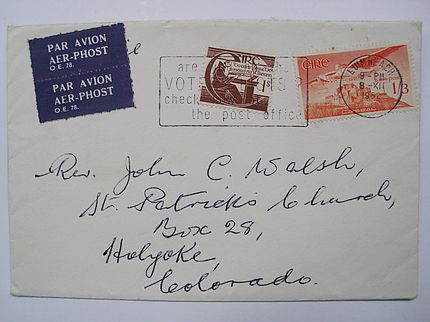 PAR AVION
AER-PHOST
O.E. 78.
PAR AVION
AER-PHOST
O.E. 78.
éIRe
1s
éIRe
1/3
are
VOTE
check
the post office
9-PM
8-XII
Rev. John C. Walsh,
St. Patrick's Church,
Box 28,
Holyoke,
Colorado.